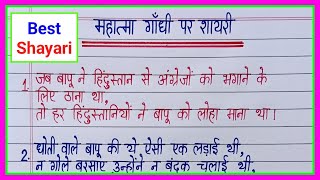 Best
Shayari
महात्मा गाँधी पर शायरी
1. जब बापू ने हिंदुस्तान से अंग्रेजों को भगाने के
लिए ठाना था,
तो हर हिंदुस्तानियों ने बापू को लोहा माना था।
2. धोती वाले बापू की ये ऐसी एक लड़ाई थी,
न गोले बरसाए उन्होंने न बंदूक चलाई थी,